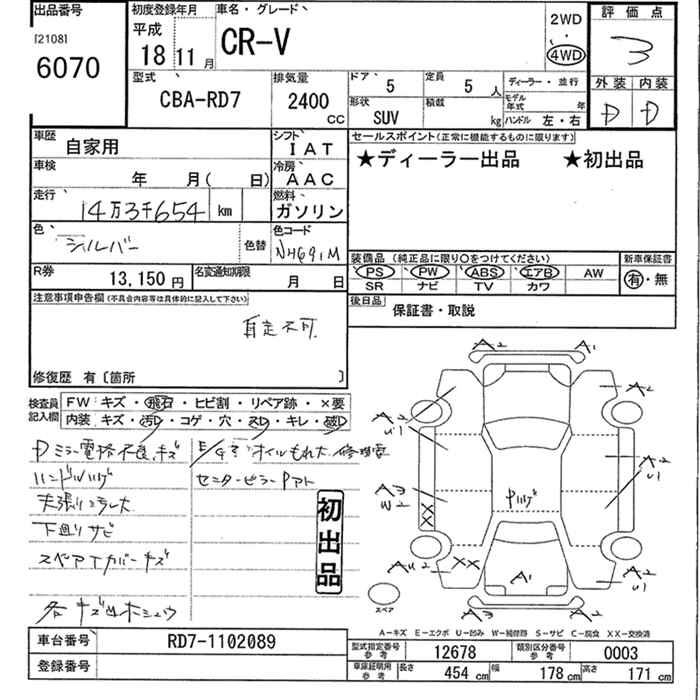 出品番号
[2108]
6070
初度登録年月
平成
18 11月
車名・グレード
CR-V
2WD
・
4WD
評価点
3
外装 内装
D D
型式
CBA-RD7
排気量
2400
CC
ドア
5
定員
5 人
形状
SUV
積載
kg
ディーラー・並行
モデル年式 年
ハンドル 左・右
車歴
自家用
シフト
IAT
車検
年 月( 日)
冷房
AAC
走行
14万3千654 km
燃料
ガソリン
色
シルバー
色替
色コード
NH691M
R券
13,150 円
名変通知期限
月 日
セールスポイント(正常に機能するものに限ります)
★ディーラー出品 ★初出品
装備品 (純正品に限り○をつけてください)
PS PW ABS エアB AW
SR ナビ TV カワ
新車保証書
有・無
後日品
保証書・取説
注意事項申告欄(不具合内容等は具体的に記入して下さい)
自走不可
修復歴 有〔箇所 〕
検査員記入欄
FW キズ・飛石・ヒビ割・リペア跡・×要
内装 キズ・汚れ・コゲ・穴・スレ・キレ・破れ
Dミラー電格不良、キズ
ハンドルハゲ
天張りヨゴレ大
下廻りサビ
スペアTカバーキズ
各キズ凹ホシュウ
オイルもれ大 修理要
センターピラー
初出品
A2 A1
A2
U1
A2
A3
W2
X
X
A2
U1
Pハゲ
AU2
XX
A1
A2
U1
A3 A2
スペア
A－キズ E－エクボ U－凹み W－補修跡 S－サビ C－腐食 XX－交換済
車台番号
RD7-1102089
登録番号
型式指定番号
参考
12678
類別区分番号
参考
0003
車庫証明用
参考
長さ 454 cm 幅 178 cm 高さ 171 cm